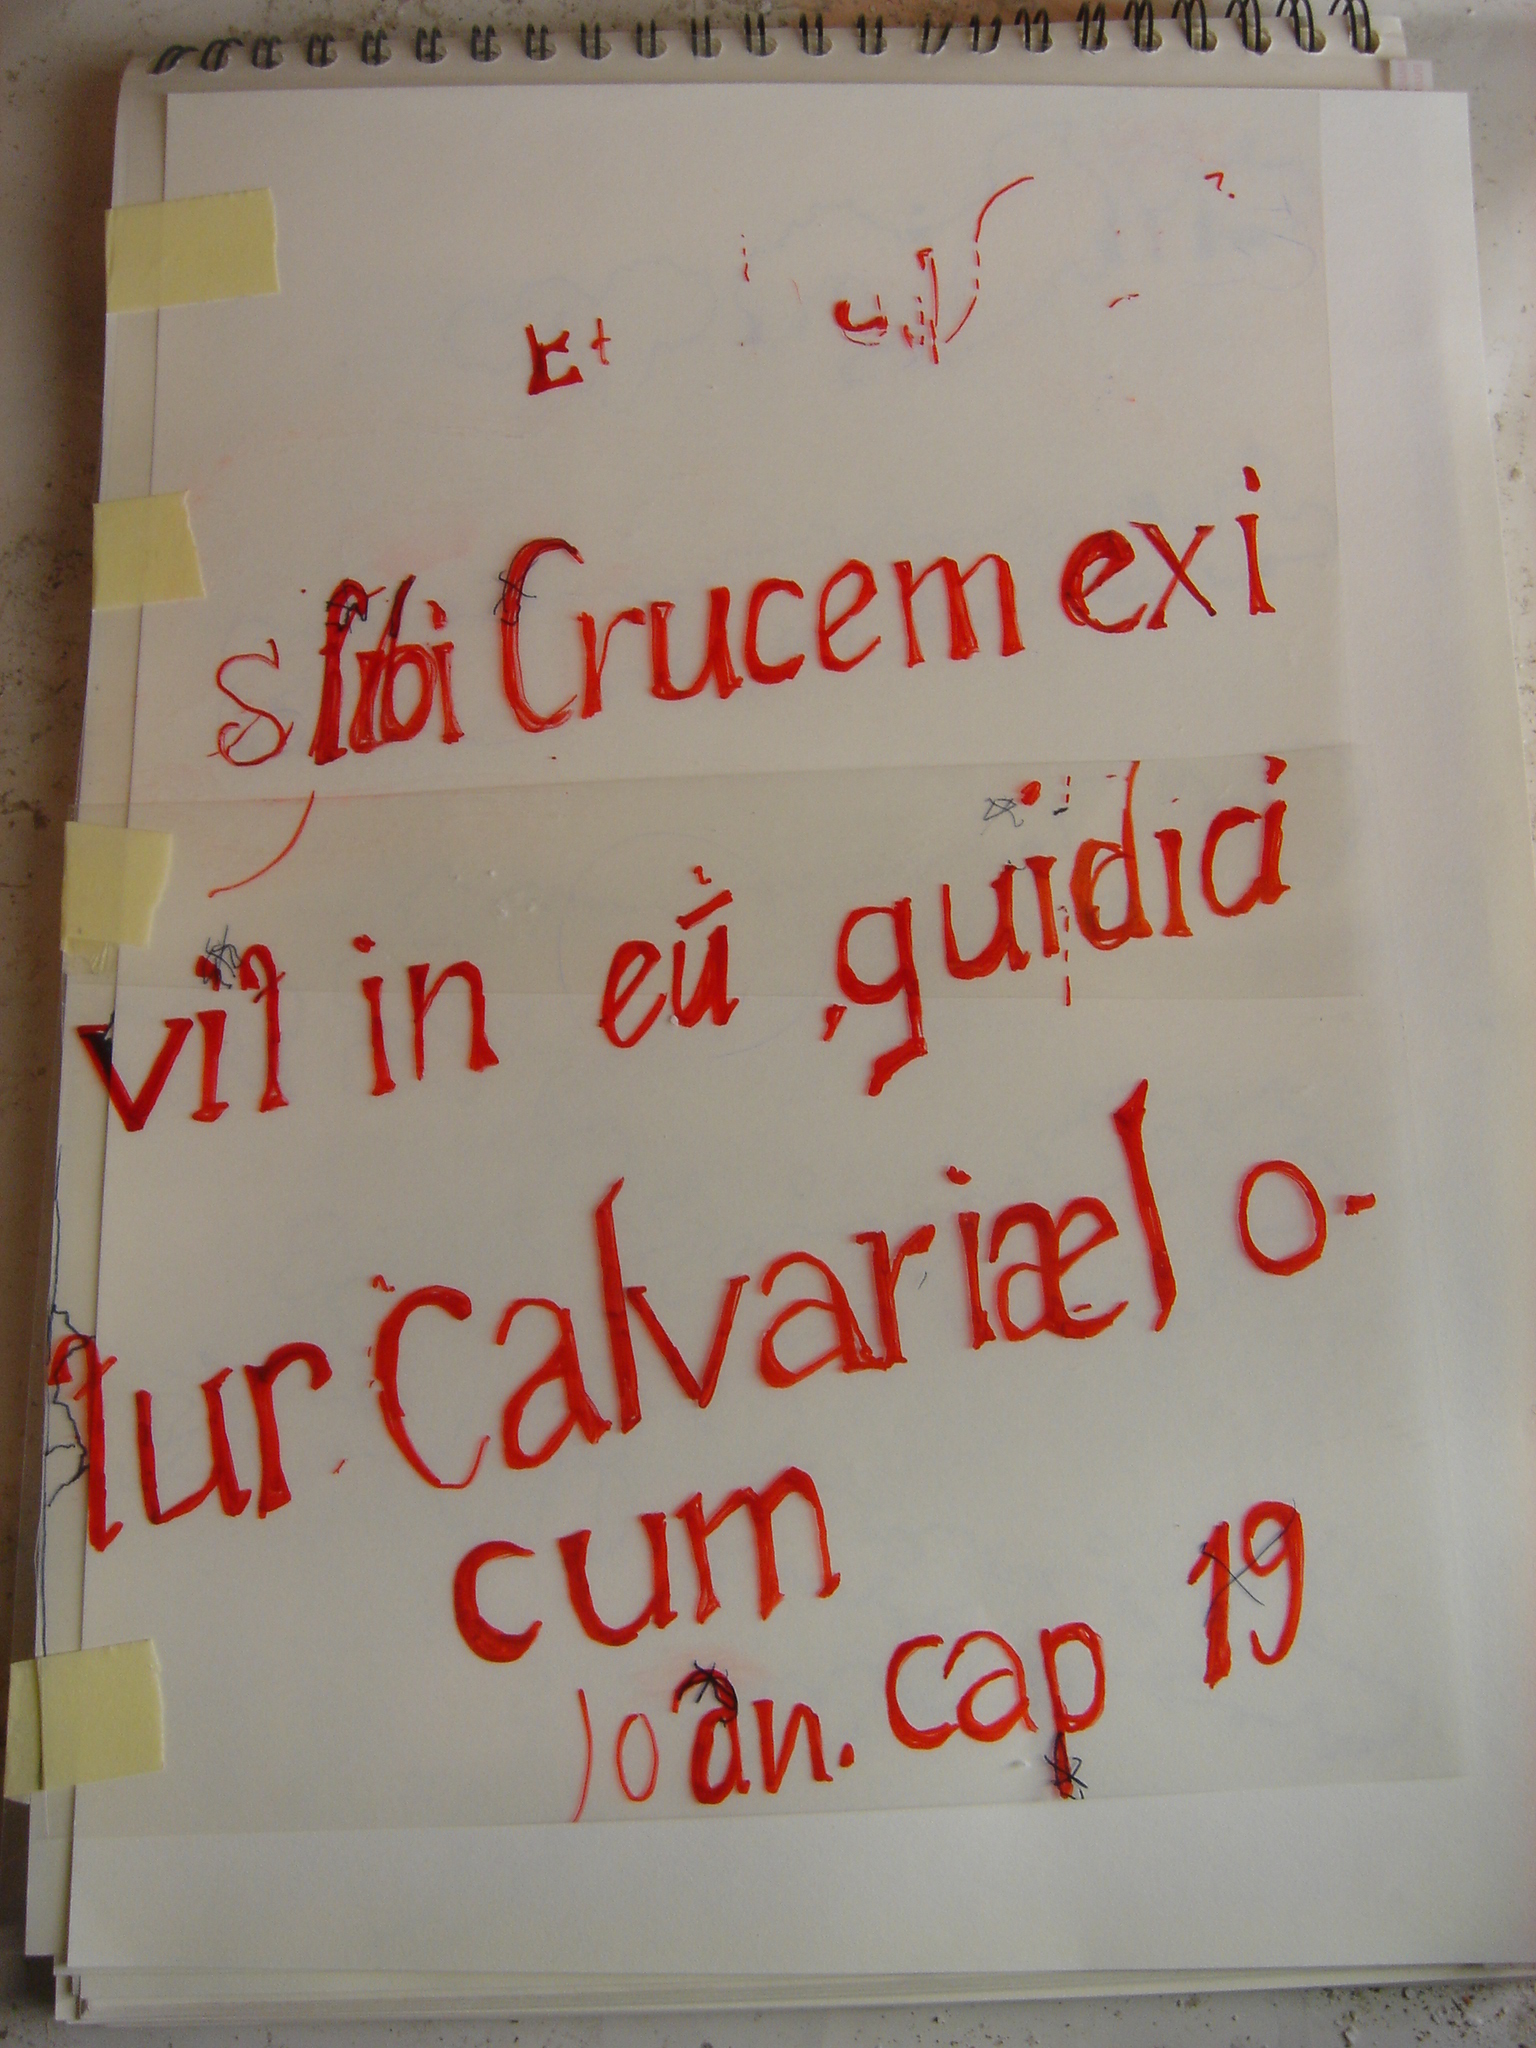 Et
s sibi Crucem exi
vit in eū, qui dici
tur. Calvariæ lo-
cum
Joan. cap 19